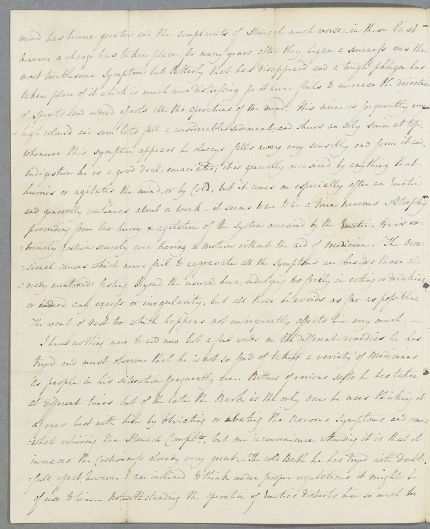 mind has become greater and the complaints of Stomach much worse in these last
however a change has taken place, for many years after they began a sourness was the
most troublesome Symptom but latterly that has disappeared and a tough phlegm has
taken place of it which is much more distressing as it never fails to increase the dejection
of Spirits and indeed affects all the operations of the mind. His urine is frequently very
high coloured and soon lets fall a considerable sediment and shows an oily scum at top
whenever this symptom appears he always falls away very sensibly and from it and
Indigestion he is a good deal emaciated, this generally occasioned by anything that
hurries or agitates the mind, or by Cold, but it comes on especially after an Emetic
and generally continues about a week - it seems to me to be a true nervous Atrophy
proceeding from the hurry & agitation of the System occasioned by the Emetic. He is ex-
tremely Costive scarcely ever having a motion without the aid of medicine. The occa-
sional causes which never fail to aggravate all the Symptoms are besides those al-
ready mentioned, fasting beyond the usual hour, indulging too freely in eating or drinking
or indeed any excess or irregularity, but all these he avoids as far as possible
The want of rest too which happens not unfrequently affects him very much. —
I have nothing more to add now but a few words on the different remedies he has
tryed and must observe that he is not so fond of taking a variety of Medicines
as people in his situation frequently are. Bitters of various sorts he has taken
at different times but of late the Bark is the only one he uses thinking it
agrees best with him by obviating or abating the nervous Symptoms and some-
what relieving the Stomach Complts, but one inconvenience attending it is that it
increases the Costiveness already very great. — The cold Bath he has tryed with doubt-
full effect however I am inclined to think under proper regulations it might be
of use to him — Notwithstanding the operation of Emetics disturbs him so much he